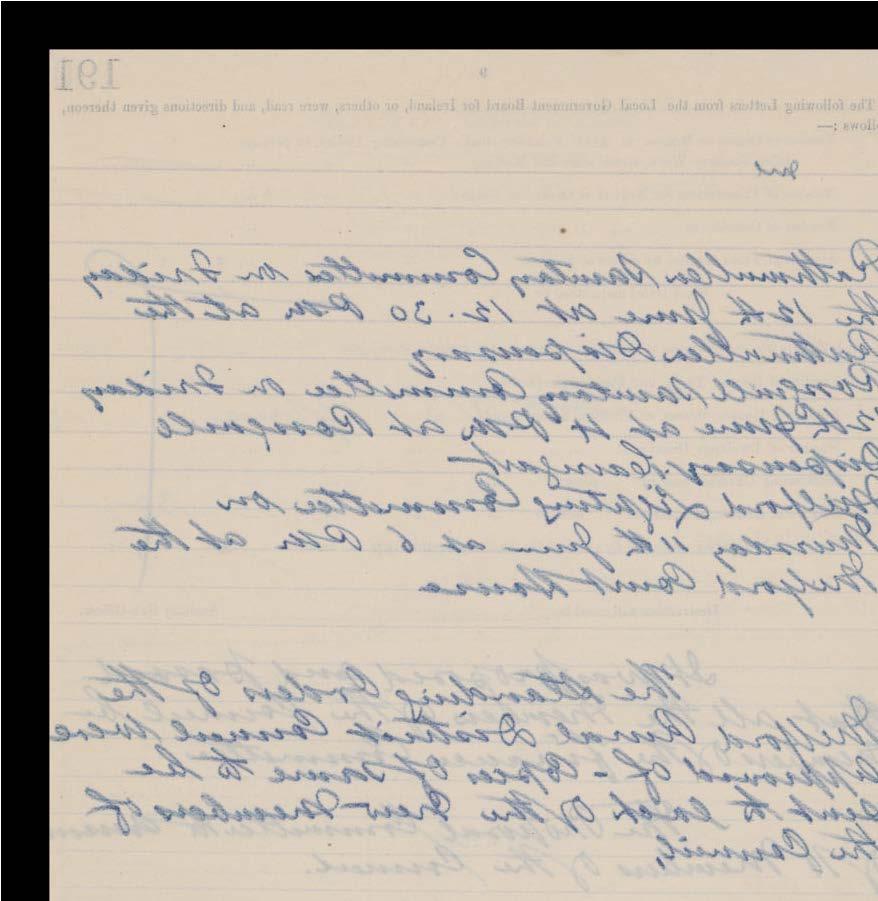 191
9
The following Letters from the Local Government Board for Ireland, or others, were read, and directions given thereon,
ollows :—
Rathmullan Sanitary Committee on Friday
the 12th June at 12.30 Pm at the
Rathmullan Dispensary
Rosguill Sanitary Committee on Friday
12th June at 4 Pm at Rosguill
Dispensary Carrigart
Milford Lighting Committee on
Thursday 11th June at 6 Pm at the
Milford Court House
The Standing Orders of the
Milford Rural District Council were
approved of - Copies of same to be
sent to each of the new members of
the Council.